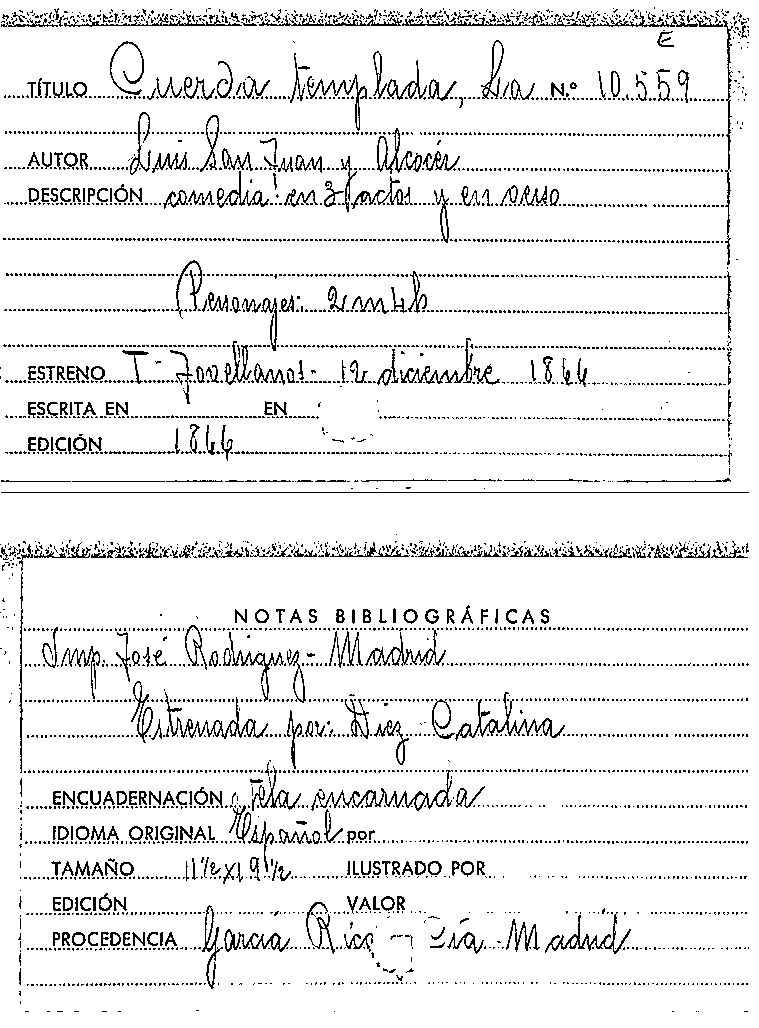 E
TÍTULO Cuerda templada, La N.º 10.559
AUTOR Luis San Juan y Alcocér
DESCRIPCIÓN comedia en 3 actos y en verso
Personajes: 2 m 4 h
ESTRENO T- Jovellanos- 12 diciembre 1866
ESCRITA EN EN
EDICIÓN 1866
NOTAS BIBLIOGRÁFICAS
Imp. José Rodriguez- Madrid
Estrenada por: Diez Catalina
ENCUADERNACIÓN tela encarnada
IDIOMA ORIGINAL Español por
TAMAÑO 11 1/2 x 19 1/2 ILUSTRADO POR
EDICIÓN VALOR
PROCEDENCIA García Rico Cía- Madrid